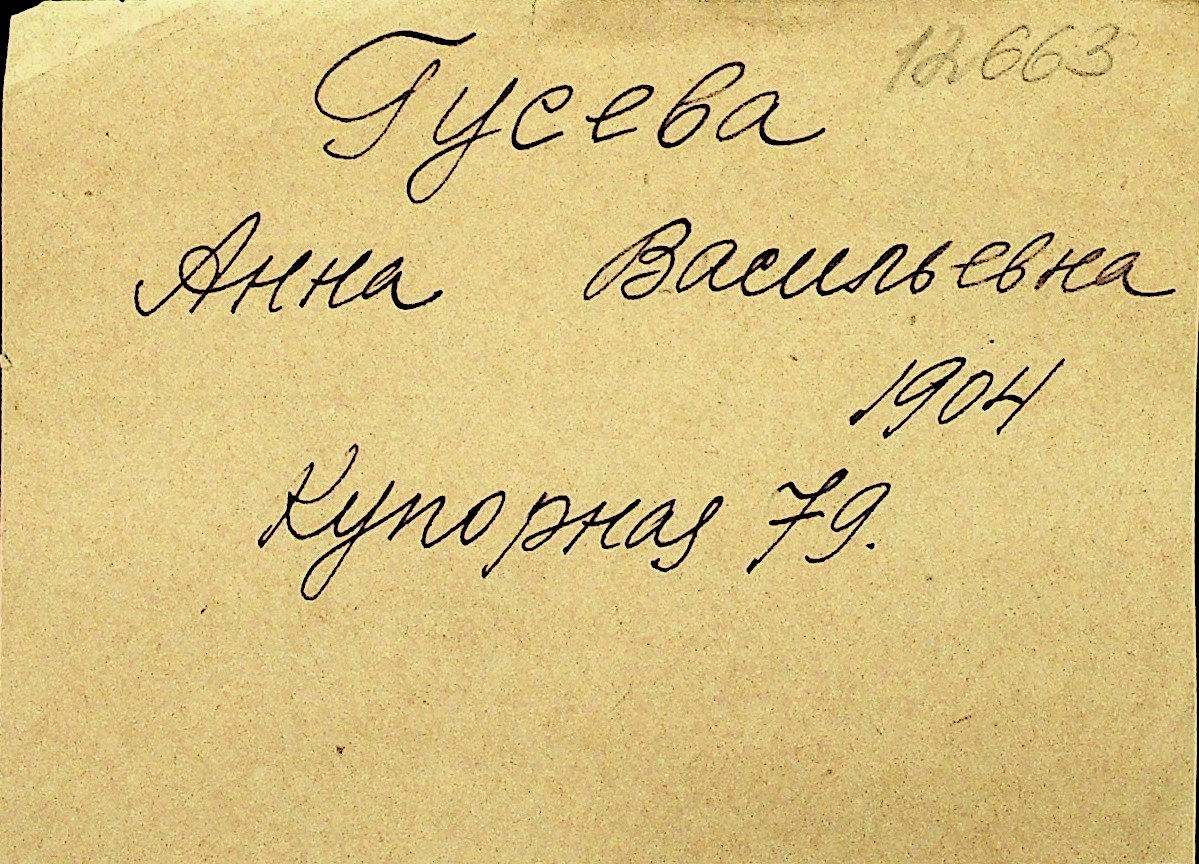 12663
Гусева
Анна Васильевна
1904
Купорная 79.